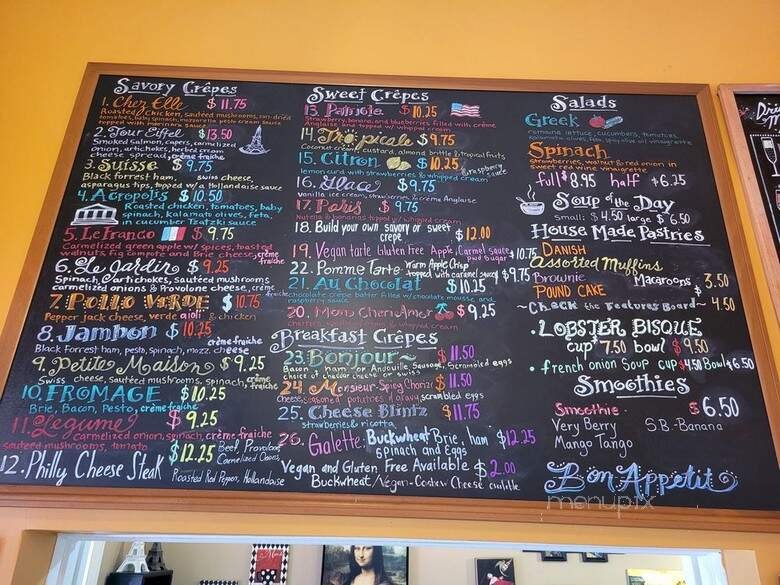 Savory Crêpes
1. Chez Elle $11.75
Roasted chicken, sautéed mushrooms, sun-dried
tomatoes, baby spinach, mozzarella, pesto cream sauce
topped with Marinara sauce
2. Tour Eiffel $13.50
Smoked Salmon, capers, carmelized
onion, artichokes, herbed cream
cheese spread, crème fraiche
3. Suisse $9.75
Black forrest ham, swiss cheese,
asparagus tips, topped w/a Hollandaise sauce
4. Acropolis $10.50
Roasted chicken, tomatoes, baby
spinach, kalamato olives, Feta,
in cucumber Tzatzki sauce
5. Le Franco $9.75
Carmelized green apple w/ spices, toasted
walnuts, fig compote and Brie cheese, crème fraiche
6. Le Jardin $9.25
Spinach, artichokes, sautéed mushrooms
carmelized onions & Provolone cheese, crème fraiche
7. Pollo Verde $10.75
Pepper jack cheese, verde aioli & chicken
8. Jambon $10.25
crème fraiche
Black Forrest ham, pesto, spinach, mozz. cheese
9. Petite Maison $9.25
Swiss cheese, sautéed mushrooms, spinach, crème fraiche
10. FROMAGE $10.25
Brie, Bacon, Pesto, crème fraiche
11. Legume $9.25
carmelized onion, spinach, crème fraiche
sauteed mushrooms, tomato
12. Philly Cheese Steak $12.25 Beef, Provolone,
Carmelized Onions,
Roasted Red Pepper, Hollandaise
Sweet Crêpes
13. Patriote $10.25
Strawberry, banana, and blueberries filled with crème
Anglaise and topped w/ whipped cream
14. Tropicale $9.75
Coconut cream custard, almond brittle & tropical fruits
15. Citron $10.25
& raspberry sauce
lemon curd with strawberries & whipped cream
16. Glace $9.75
Vanilla ice cream, strawberries & crème Anglaise
17. Paris $9.75
Nutella & bananas topped w/ whipped cream
18. Build your own savory or sweet
crepe $12.00
19. Vegan tarte Gluten Free Apple, Carmel sauce $10.75
pwd sugar
22. Pomme Tarte Warm Apple Crisp
topped with caramel sauce $9.75
21. Au Chocolat $10.25
chocolate crepe batter filled w/ chocolate mousse and
raspberry sauce
20. Mon Cheri Amor $9.25
cherries & whipped cream
Breakfast Crêpes
23. Bonjour~ $11.50
Bacon, ham or Andouille Sausage, Scrambled eggs
choice of cheddar cheese or swiss
24. Monsieur-Spicy Chorizo $11.50
Cheese, seasoned potatoes & scrambled eggs
25. Cheese Blintz $11.75
strawberries & ricotta
26. Galette: Buckwheat Brie, ham $12.25
spinach and Eggs
Vegan and Gluten Free Available $2.00
Buckwheat / Vegan-Cashew Cheese available
Salads
Greek
romaine lettuce, cucumbers, tomatoes,
Kalamata olives, feta, olive oil vinaigrette
Spinach
strawberries, walnut & red onion in
sweet red wine vinaigrette
full $8.95 half $6.25
Soup of the Day
small: $4.50 large $6.50
House Made Pastries
DANISH
Assorted Muffins
Brownie Macaroons 3.50
POUND CAKE $
~Check the Features Board~ 4.50
• LOBSTER BISQUE
cup $7.50 bowl $9.50
• french onion Soup cup $4.50 Bowl $6.50
Smoothies
Smoothie $6.50
Very Berry S.B. Banana
Mango Tango
Bon Appetit
menupix